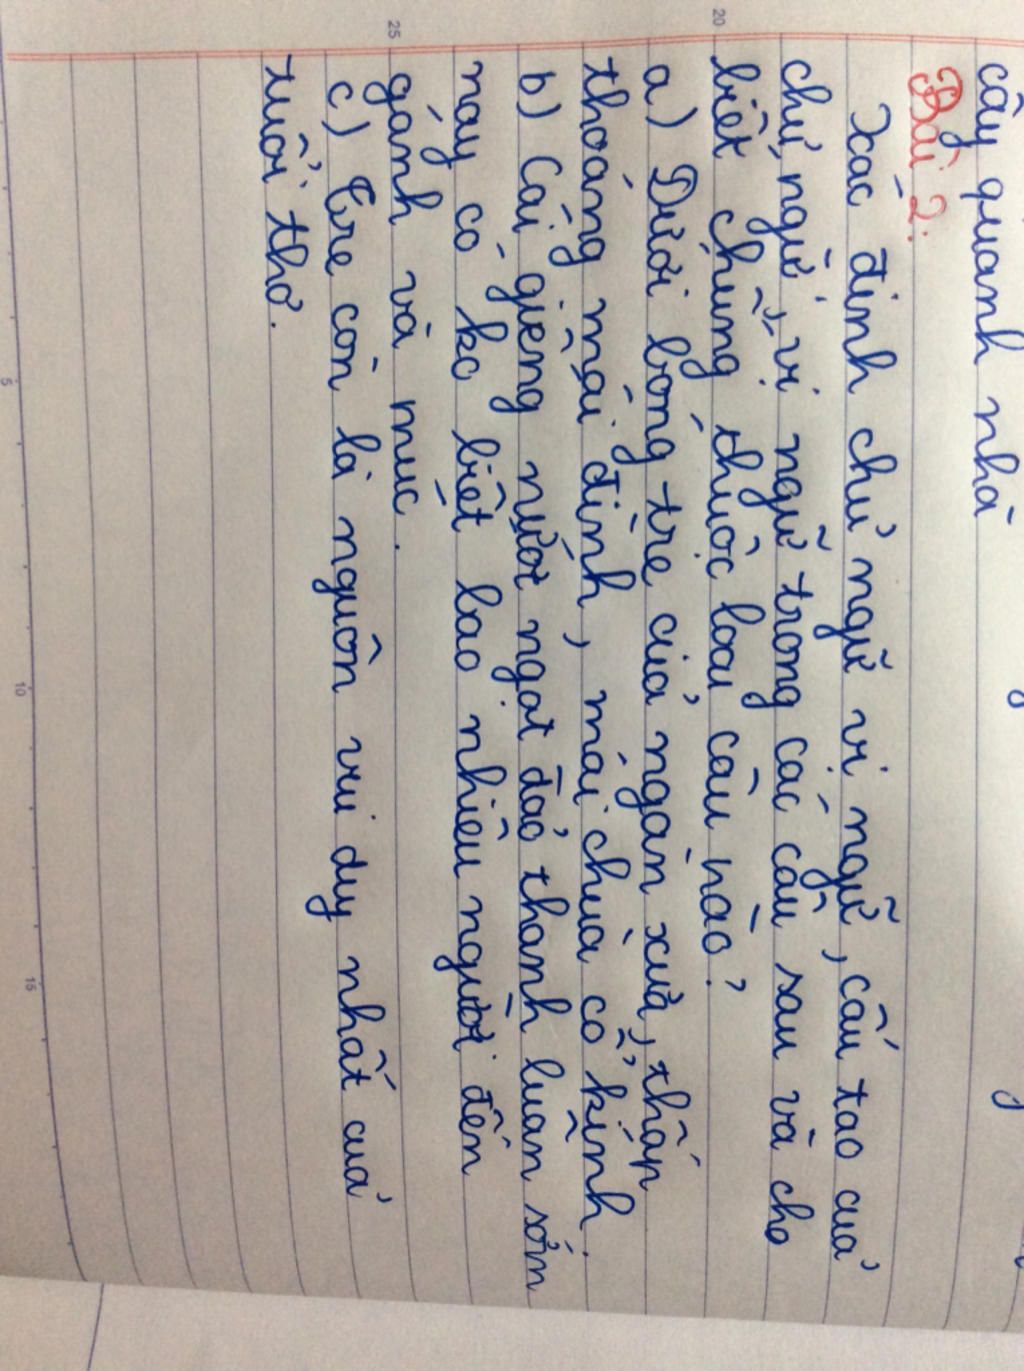 cây quanh nhà
Bài 2:
Xác định chủ ngữ vị ngữ, cấu tạo của
chủ ngữ, vị ngữ trong các câu sau và cho
biết chúng thuộc loại câu nào?
a) Dưới bóng tre của ngàn xưa, thấp
thoáng mái đình, mái chùa cổ kính.
b) Cái giếng nước ngọt đảo thanh luân sớm
nay có kc biết bao nhiêu người đến
gánh và múc.
c) Tre còn là nguồn vui duy nhất của
tuổi thơ.
20
25
5
10
15